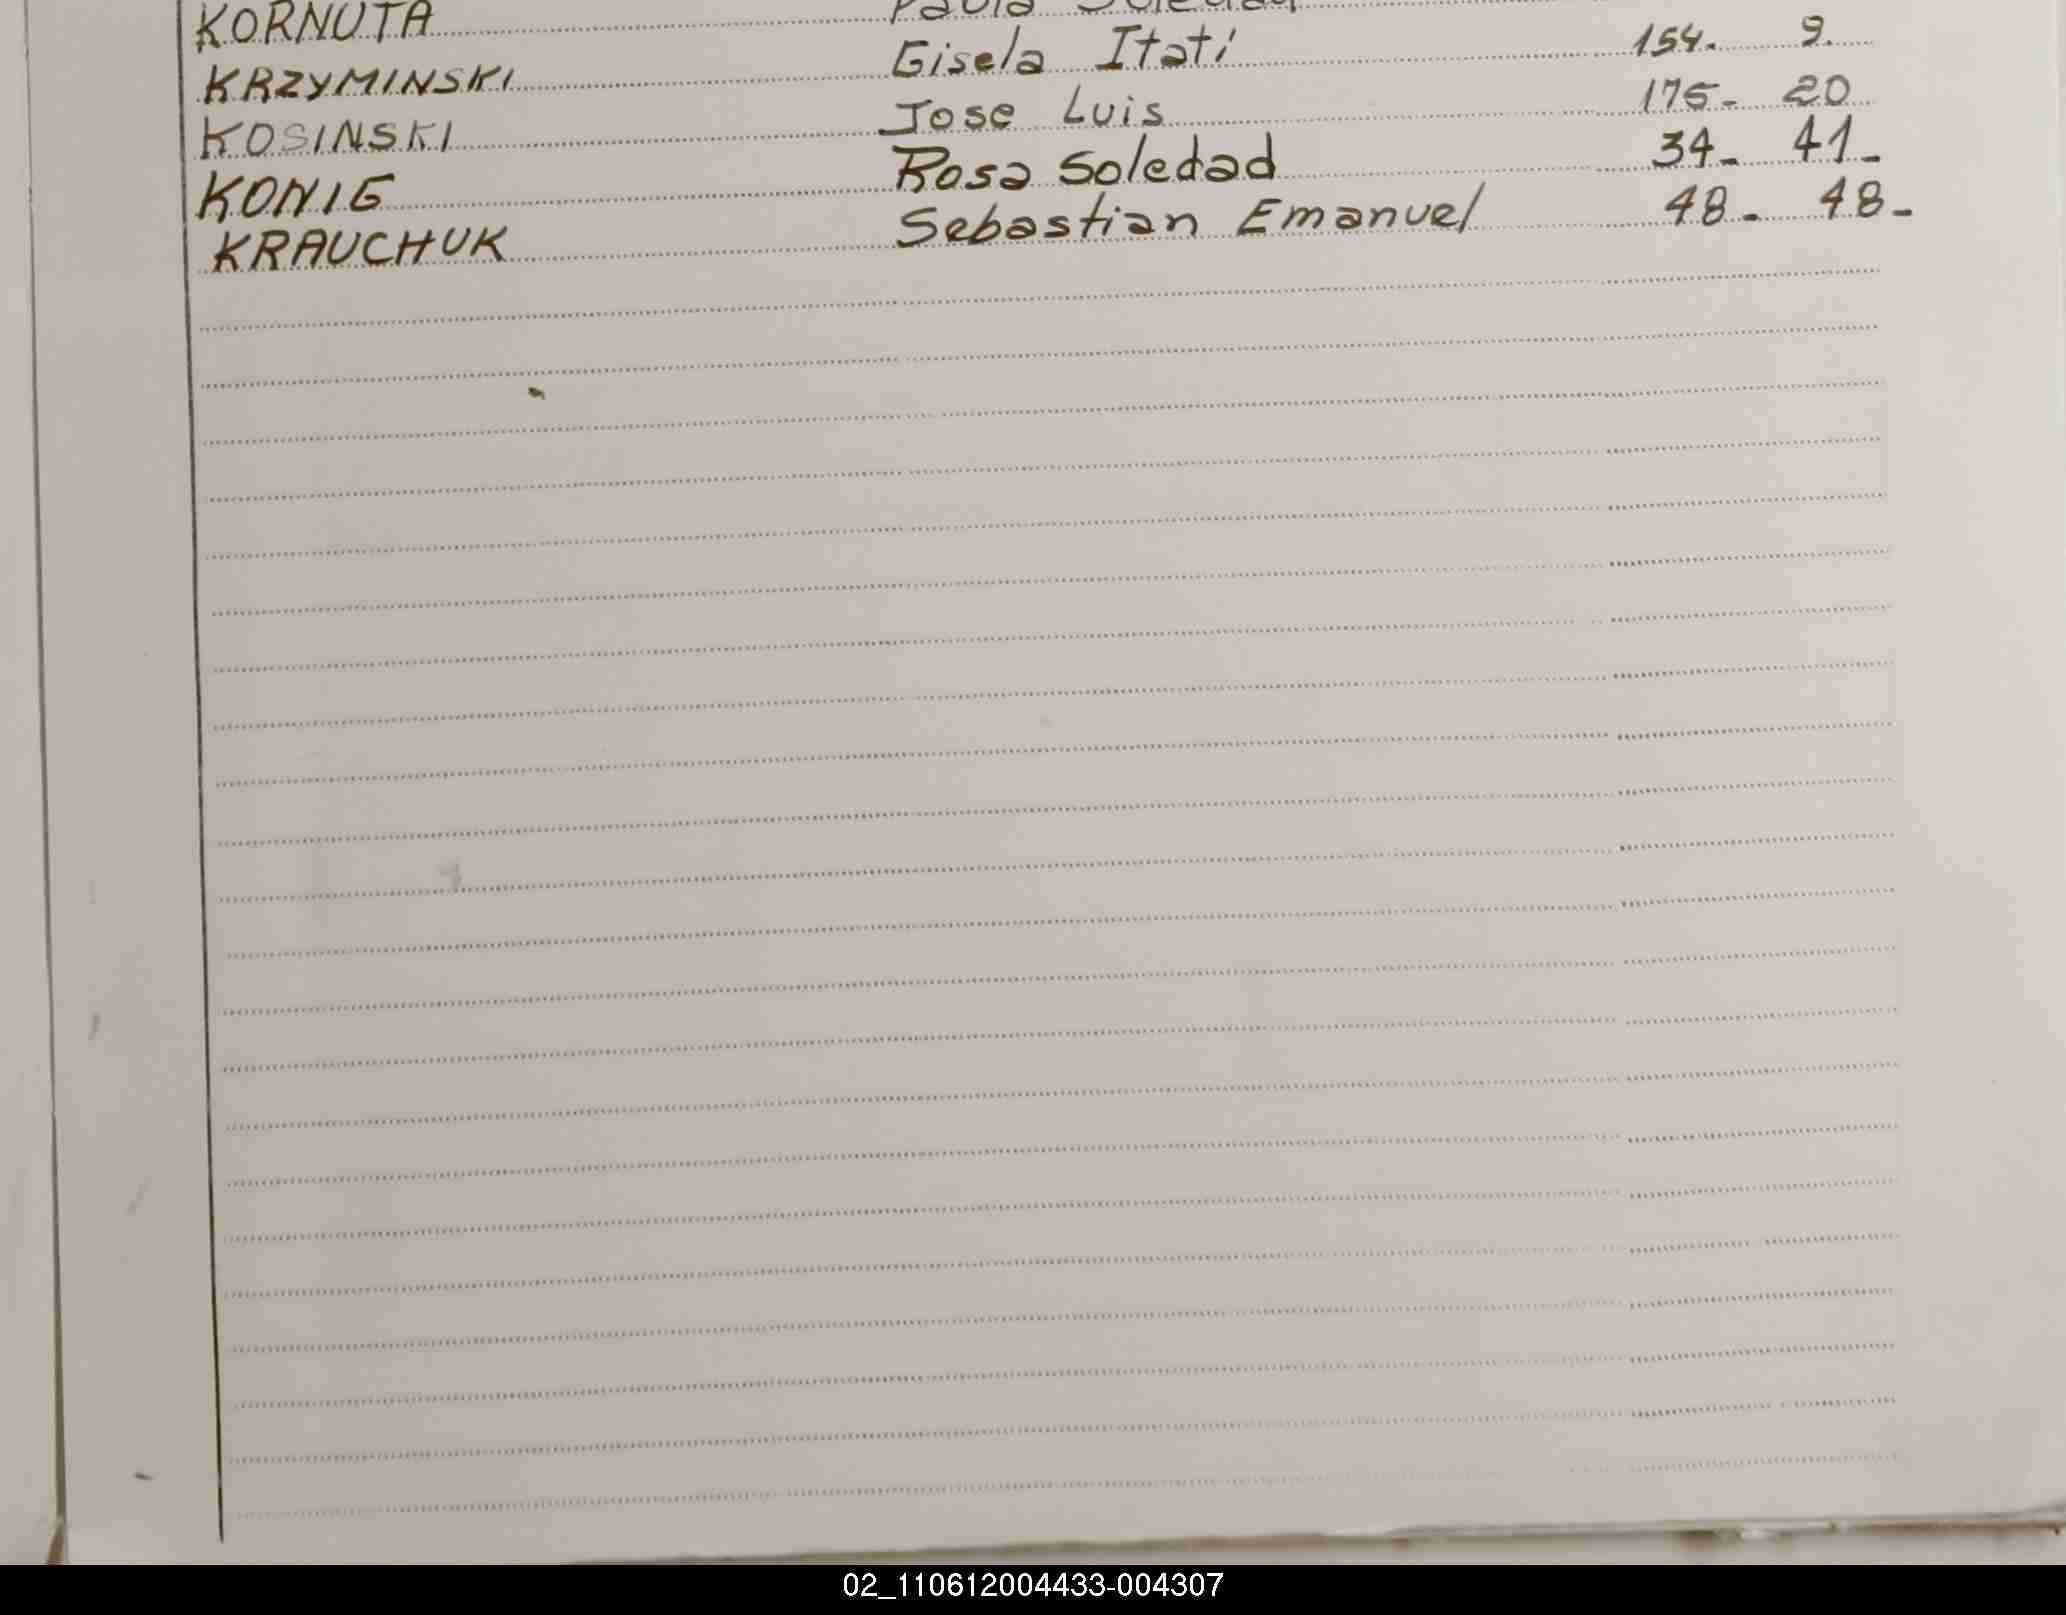 KORNUTA Paula Soledad
KRZYMINSKI Gisela Itati 154. 9.
KOSINSKI Jose Luis 175- 20
KONIG Rosa Soledad 34- 41-
KRAUCHUK Sebastian Emanuel 48- 48-
02_110612004433-004307